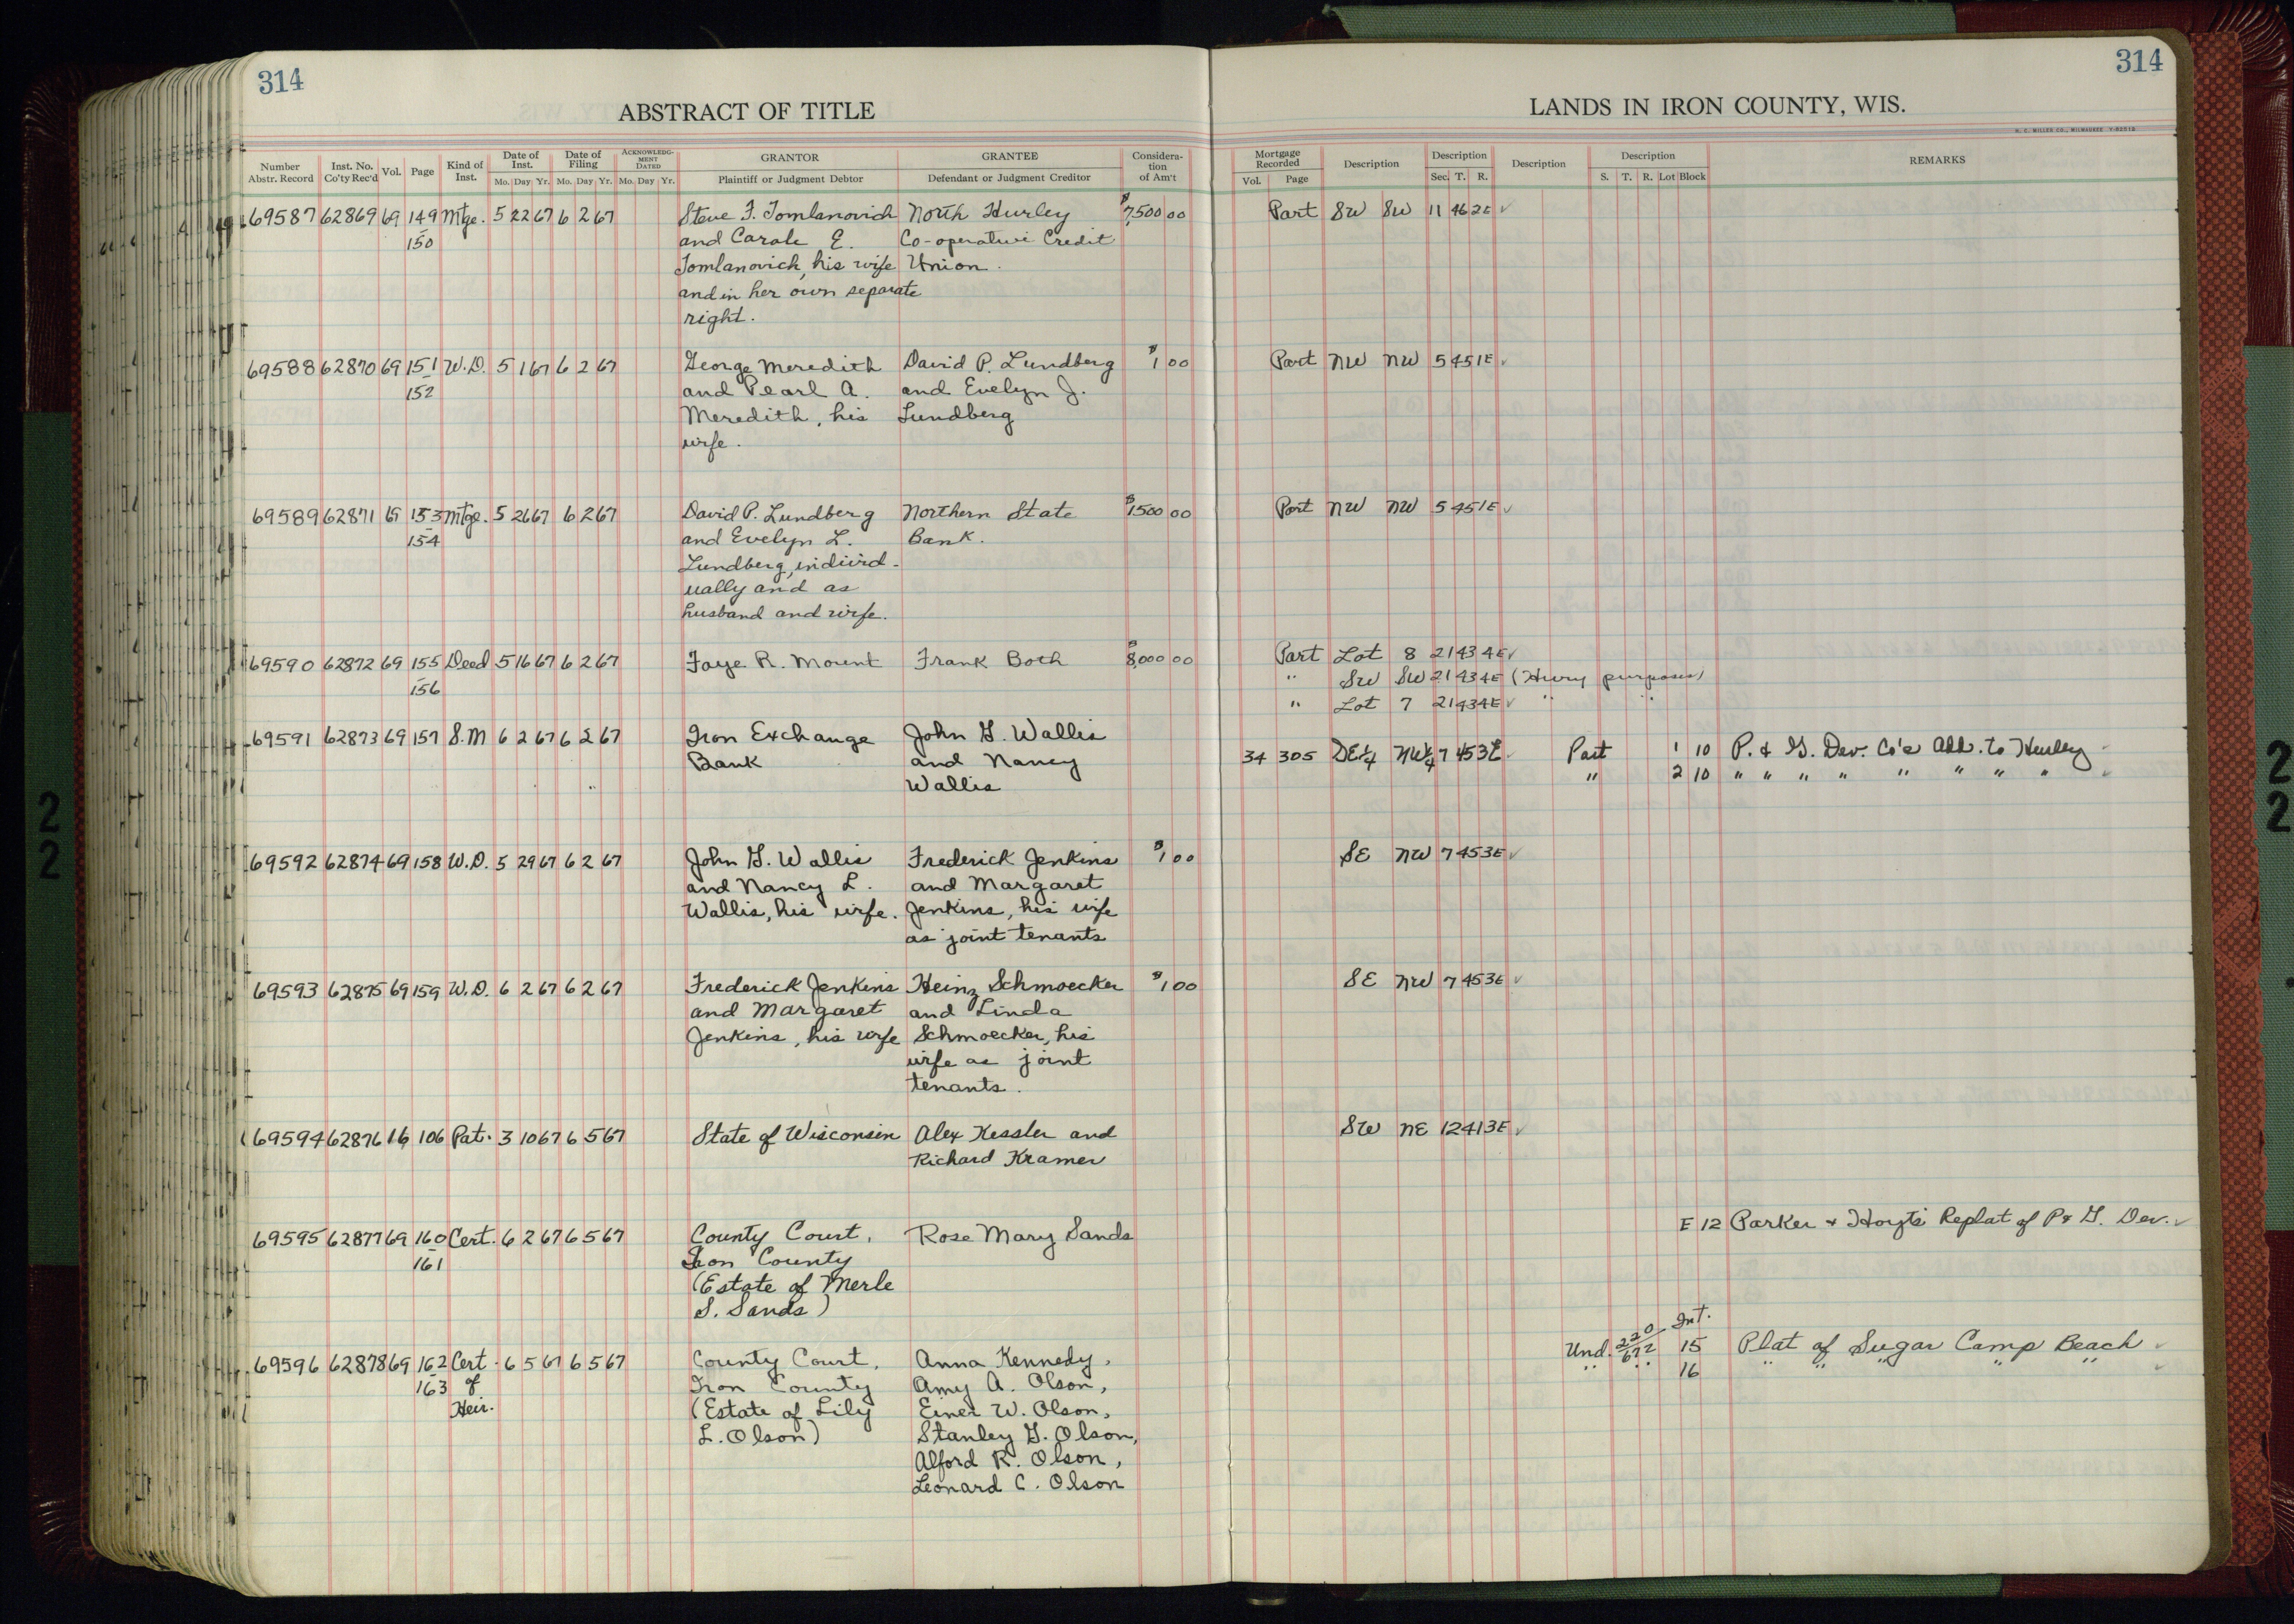 314
314
ABSTRACT OF TITLE
LANDS IN IRON COUNTY, WIS.
H. C. MILLER CO., MILWAUKEE
Number Abstr. Record | Inst. No. Co'ty Rec'd | Vol. | Page | Kind of Inst. | Date of Inst. Mo. Day Yr. | Date of Filing Mo. Day Yr. | ACKNOWLEDGMENT DATED Mo. Day Yr. | GRANTOR Plaintiff or Judgment Debtor | GRANTEE Defendant or Judgment Creditor | Consideration of Am't
Mortgage Recorded Vol. Page | Description | Description Sec. T. R. | Description | Description S. T. R. Lot Block | REMARKS
69587 62869 69 149 Mtge. 5 22 67 6 2 67 Steve F. Tomlanovich North Hurley $7,500 00 Part SW SW 11 46 2E ✓
150 and Carole E. Co-operative Credit
Tomlanovich, his wife Union.
and in her own separate
right.
69588 62870 69 151 W.D. 5 1 67 6 2 67 George Meredith David P. Lundberg $1 00 Part NW NW 5 45 1E ✓
152 and Pearl A. and Evelyn J.
Meredith, his Lundberg
wife.
69589 62871 69 153 Mtge. 5 26 67 6 2 67 David P. Lundberg Northern State $1500 00 Part NW NW 5 45 1E ✓
154 and Evelyn L. Bank.
Lundberg, individ-
ually and as
husband and wife.
69590 62872 69 155 Deed 5 16 67 6 2 67 Faye R. Mount Frank Both $8,000 00 Part Lot 8 21 43 4E ✓
156 " SW SW 21 43 4E (Hwy purposes)
" Lot 7 21 43 4E ✓ " "
69591 62873 69 157 S.M 6 2 67 6 2 67 Iron Exchange John G. Wallis 34 305 SE¼ NW¼ 7 45 3E Part 1 10 P. & G. Dev. Co's Add. to Hurley
Bank and Nancy " 2 10 " " " " " " " "
Wallis
69592 62874 69 158 W.D. 5 29 67 6 2 67 John G. Wallis Frederick Jenkins $1 00 SE NW 7 45 3E ✓
and Nancy L. and Margaret
Wallis, his wife. Jenkins, his wife
as joint tenants
69593 62875 69 159 W.D. 6 2 67 6 2 67 Frederick Jenkins Heinz Schmoecker $1 00 SE NW 7 45 3E ✓
and Margaret and Linda
Jenkins, his wife Schmoecker, his
wife as joint
tenants.
69594 62876 16 106 Pat. 3 10 67 6 5 67 State of Wisconsin Alex Kessler and SW NE 12 41 3E ✓
Richard Kramer
69595 62877 69 160 Cert. 6 2 67 6 5 67 County Court, Rose Mary Sands E 12 Parker & Hoyt's Replat of P & G. Dev. ✓
161 Iron County
(Estate of Merle
S. Sands)
69596 62878 69 162 Cert. 6 5 67 6 5 67 County Court, Anna Kennedy, Und. 220/672 Int. 15 Plat of Sugar Camp Beach ✓
163 of Iron County Amy A. Olson, " " 16 " " " " " ✓
Heir. (Estate of Lily Einer W. Olson,
L. Olson) Stanley G. Olson,
Alford R. Olson,
Leonard C. Olson
22
22